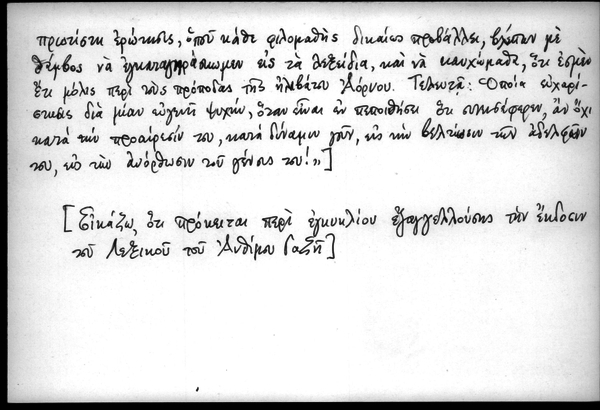 πρωτίστη ἐρώτησις, ὁποῦ κάθε φιλομαθὴς δικαίως προβάλλει, βλέπων μὲ
θάμβος νὰ ἐγκαταγηράσκωμεν εἰς τὰ λεξείδια, καὶ νὰ καυχώμαθε, ὅτι ἐσμὲν
ἔτι μόλις περὶ τοὺς πρόποδας τῆς ἠλιβάτου Ἀόρνου. Τελευτᾷ: Ὁποία εὐχαρί-
στησις διὰ μίαν εὐγενῆ ψυχήν, ὅταν εἶναι ἐν πεποιθήσει ὅτι συνεισέφερεν, ἂν ὄχι
κατὰ τὴν προαίρεσίν του, κατὰ δύναμιν γοῦν, εἰς τὴν βελτίωσιν τῶν ἀδελφῶν
του, εἰς τὴν ἀνόρθωσιν τοῦ γένους του!»]
[Εἰκάζω, ὅτι πρόκειται περὶ ἐγκυκλίου ἐξαγγελλούσης τὴν ἔκδοσιν
τοῦ Λεξικοῦ τοῦ Ἀνθίμου Γαζῆ]